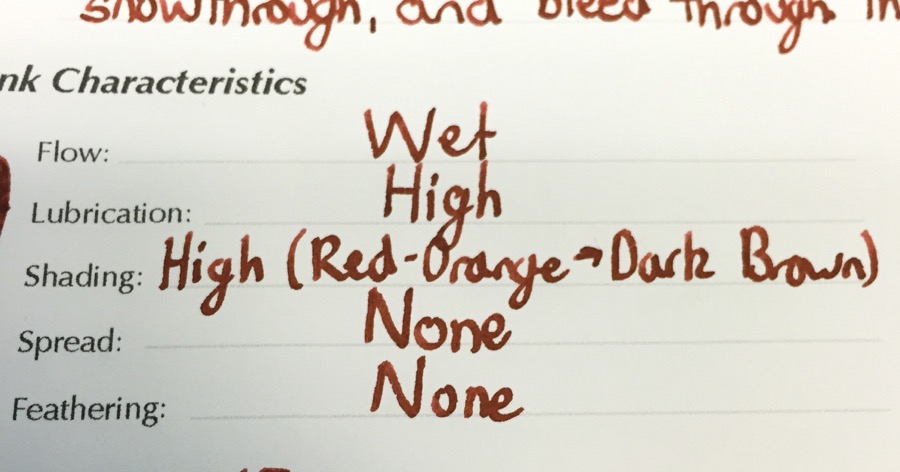 showthrough, and bleed through
nk Characteristics
Flow: Wet
Lubrication: High
Shading: High (Red-Orange→Dark Brown)
Spread: None
Feathering: None